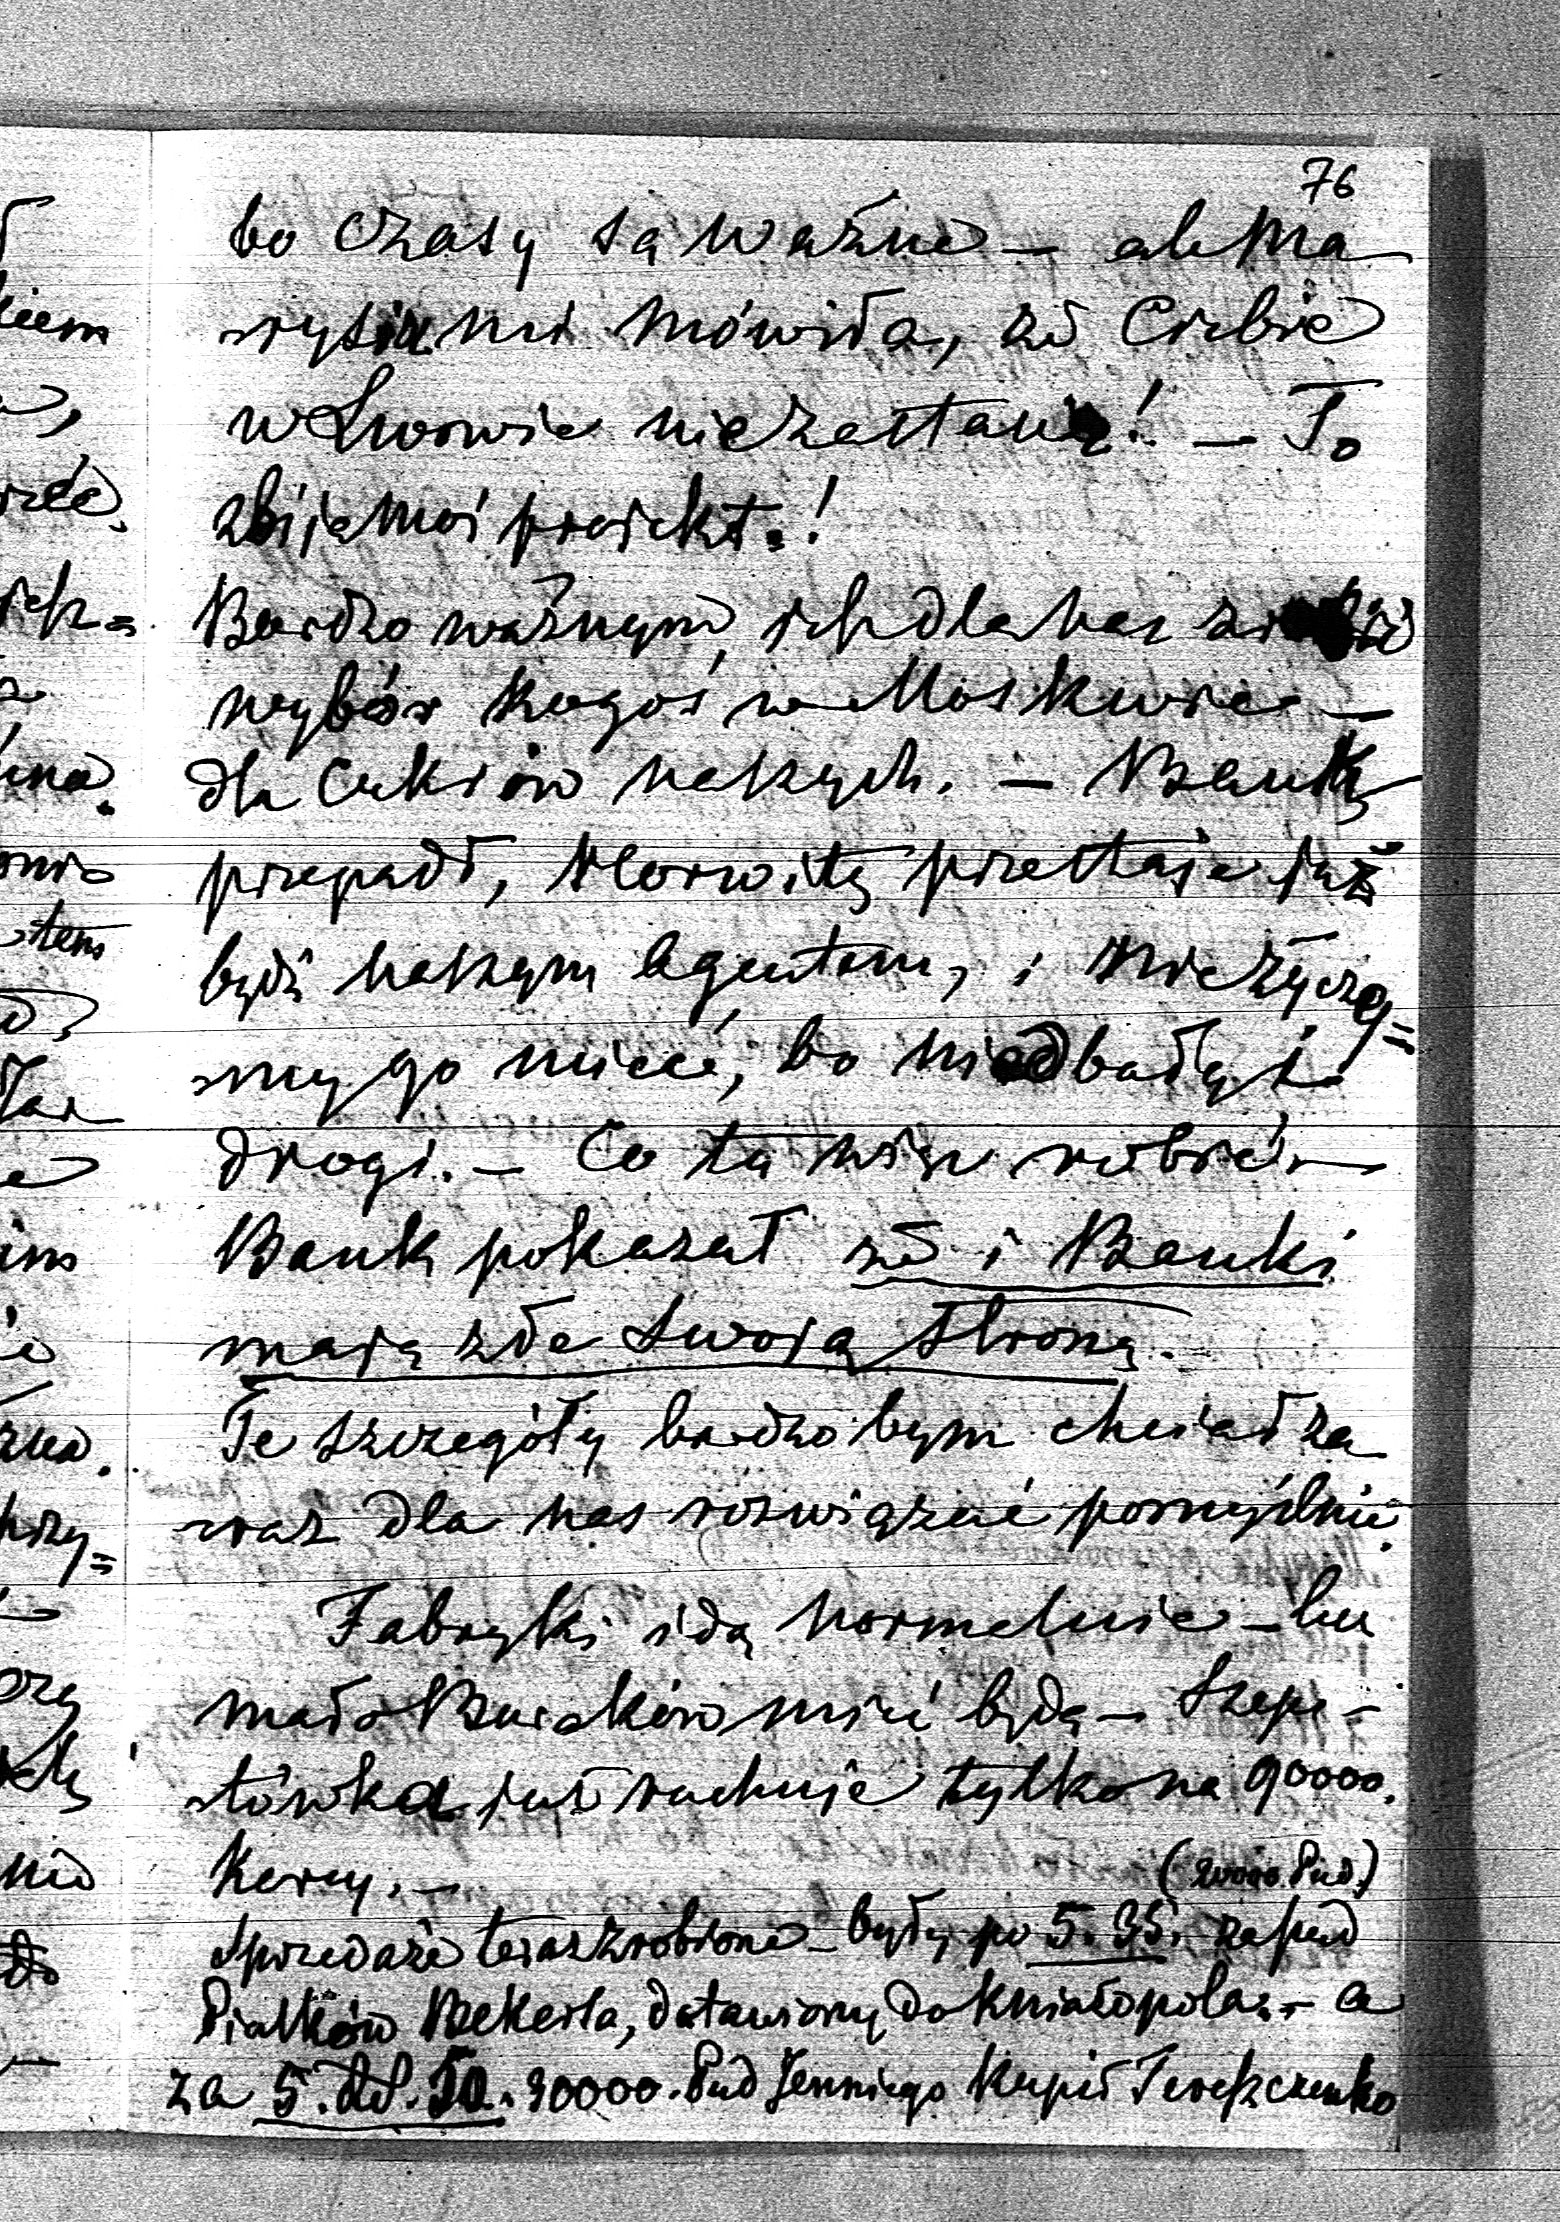 76
bo czasy są ważne — ale Ma
rysia mi mówiła, że Ciebie
w Lwowie nie zastanę! — To
zbije mój projekt.!
Bardzo ważnym, jest dla nas
wybór kogoś w Moskwie —
dla Cukrów naszych. — Bank
przepadł, Horwitz przestaje już
być naszym Agentem, i nie życzę=
my go mieć, bo niedbały i
drogi. — Co tu więc robić —
Bank pokazał że i Banki
mają złe swoją stronę.
Te szczegóły bardzo bym chciał za
raz dla nas rozwiązać pomyślnie.
Fabryki idą normalnie — lecz
mało Buraków mieć będą — Szepe-
tówka już rachuje tylko na 90000.
Korcy. —
(20000 Pud.)
Sprzedaże teraz zrobione — były po 5.35. za pud
Piatków Bekersa, dostawiony do Kniażopola. — a
za 5. rbl. 50. 30000. Pud Jenniego Kupił Tereszczenko